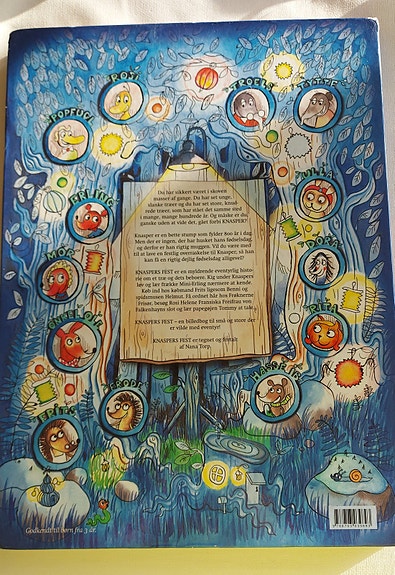 ROSI
TROELS
TYTTE
POPFUGL
ERLING
ULLA
DORA
RITA
FRODE
FRITS
Du har sikkert været i skoven
masser af gange. Du har set unge,
slanke træer og du har set store, knud-
rede træer, som har stået det samme sted
i mange, mange hundrede år. Og måske er du,
ganske uden at vide det, gået forbi KNASPER!
Knasper er en bette stump som fylder 800 år i dag!
Men der er ingen, der har husket hans fødselsdag,
og derfor er han rigtig muggen. Vil du være med
til at lave en festlig overraskelse til Knasper, så han
kan få en rigtig dejlig fødselsdag alligevel?
KNASPERS FEST er en myldrende eventyrlig histo-
rie om et træ og dets beboere. Kig under Knaspers
løv og lær frække Mini-Erling nærmere at kende.
Køb ind hos købmand Frits ligesom Benni og
spidsmusen Helmut. Få ordnet hår hos Frøknerne
Frisør, besøg Rosi Helene Franziska Feinfrau von
Falkenhayns slot og lær papegøjen Tommy at tale.
KNASPERS FEST – en billedbog til små og store der
er vilde med eventyr!
KNASPERS FEST er tegnet og fortalt
af Nana Torp
Godkendt til børn fra 3 år.